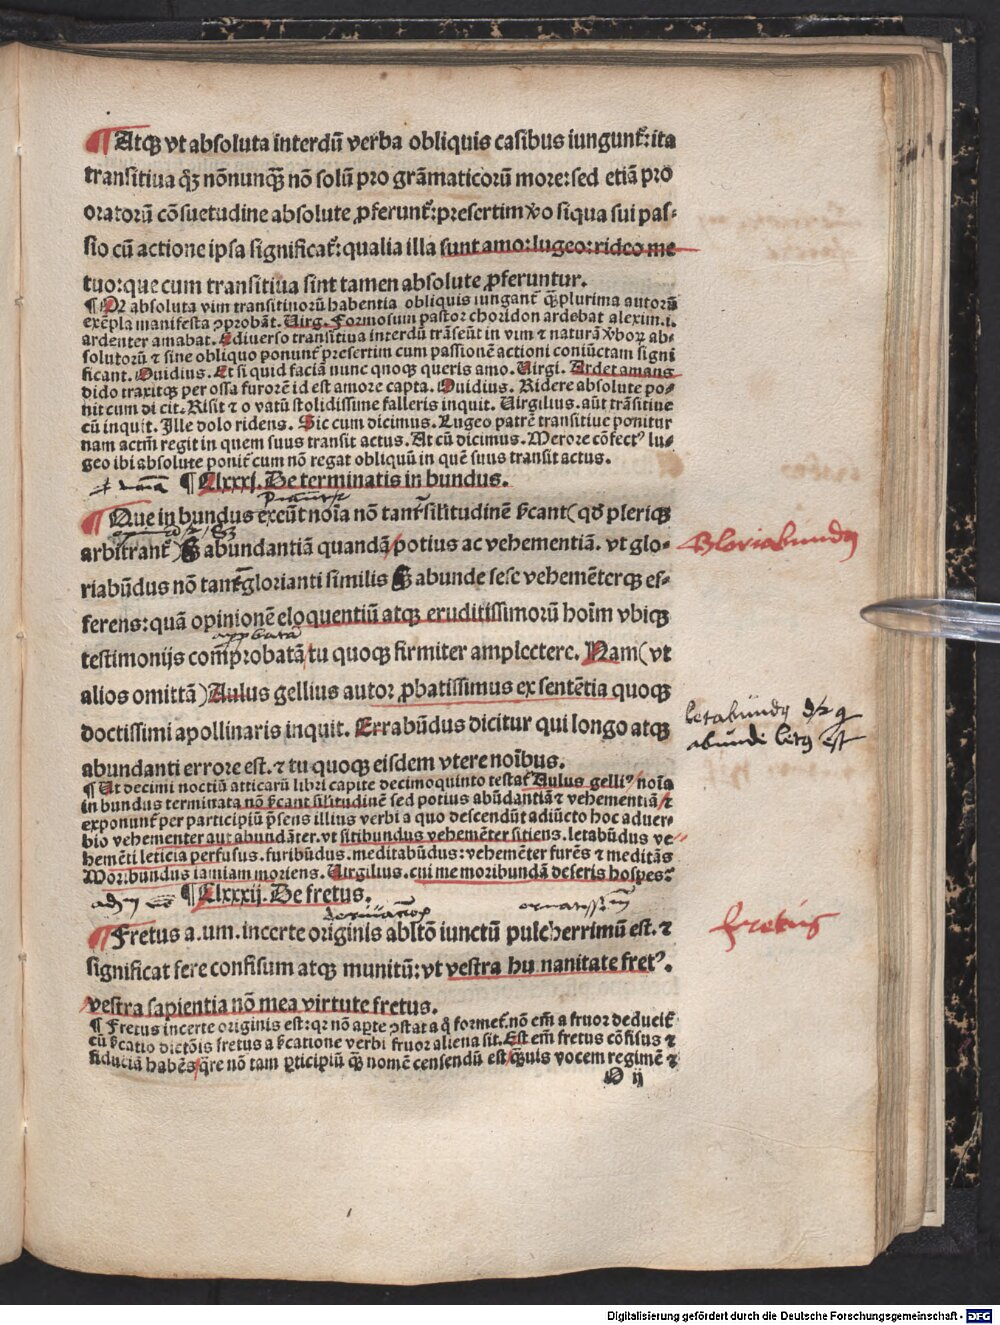 ¶ Atqꝫ vt absoluta interdū verba obliquis casibus iungunt᷑: ita
transitiua qꝫ nōnunqꝫ nō solū pro grāmaticorū more: sed etiā pro
oratorū cōsuetudine absolute ꝓferunt᷑: presertim ꝟo si qua sui pas-
sio cū actione ipsa significat᷑: qualia illa sunt amo: lugeo: rideo me
tuo: que cum transitiua sint tamen absolute ꝓferuntur.
¶ Qꝛ absoluta vim transitiuorū habentia obliquis iungant᷑ qꝫ plurima autorū
exēpla manifesta ꝯprobāt. Uirg. Formosum pastor choridon ardebat alexim .i.
ardenter amabat. Ediuerso transitiua interdū trāseūt in vim ⁊ naturā ꝟboꝝ ab-
solutorū ⁊ sine obliquo ponunt᷑ presertim cum passionē actioni coniūctam signi
ficant. Ouidius. Et si quid faciā nunc qnoqꝫ queris amo. Uirgi. Ardet amans
dido traxitqꝫ per ossa furorē id est amore capta. Ouidius. Ridere absolute po-
nit cum di cit. Risit ⁊ o vatū stolidissime falleris inquit. Uirgilius. aūt trāsitiue
cū inquit. Ille dolo ridens. Sic cum dicimus. Lugeo patrē transitiue ponitur
nam actm̄ regit in quem suus transit actus. At cū dicimus. Merore cōfectꝰ lu-
geo ibi absolute ponit᷑ cum nō regat obliquū in quē suus transit actus.
¶ Clxxxj. De terminatis in bundus.
¶ Que in bundus exeūt noīa nō tant᷑ silitudinē ẜcant (qđ pleriqꝫ
arbitrant᷑) Sꝫ abundantiā quandā potius ac vehementiā. vt glo-
riabūdus nō tant᷑ glorianti similis Sꝫ abunde sese vehemēterqꝫ ef-
ferens: quā opinionē eloquentiū atqꝫ eruditissimorū hoīm vbiqꝫ
testimonijs comprobatā tu quoqꝫ firmiter amplectere. Nam (vt
alios omittā) Aulus gellius autor ꝓbatissimus ex sentētia quoqꝫ
doctissimi apollinaris inquit. Errabūdus dicitur qui longo atqꝫ
abundanti errore est. ⁊ tu quoqꝫ eisdem vtere noībus.
¶ Ut decimi noctiū atticarū libri capite decimoquinto testat᷑ Aulus gelliꝰ noīa
in bundus terminata nō ẜcant silitudinē sed potius abūdantiā ⁊ vehementiā ⁊
exponunt᷑ per participiū p̄sens illius verbi a quo descendūt adiūcto hoc aduer-
bio vehementer aut abundāter. vt sitibundus vehemēter sitiens. letabūdus ve
hemēti leticia perfusus. furibūdus. meditabūdus: vehemēter furēs ⁊ meditās
Moribundus iamiam moriens. Uirgilius. cui me moribundā deseris hospes:
¶ Clxxxij. De fretus.
¶ Fretus a.um. incerte originis abltō iunctū pulcherrimū est. ⁊
significat fere confisum atqꝫ munitū: vt vestra hu nanitate fretꝰ.
vestra sapientia nō mea virtute fretus.
¶ Fretus incerte originis est: qꝛ nō aꝑte ꝯstat a q̄ formet᷑. nō em̄ a fruor deducit᷑
cū ẜcatio dictōis fretus a ẜcatione verbi fruor aliena sit. Est em̄ fretus cōfisus ⁊
fiduciā habēs q̄re nō tam ꝑticipiū qꝫ nomē censendū est qꝫuis vocem regimē ⁊
O ij
Gloriabundꝰ
letabundꝰ
abundi letꝰ est
fretus
Digitalisierung gefördert durch die Deutsche Forschungsgemeinschaft - DFG